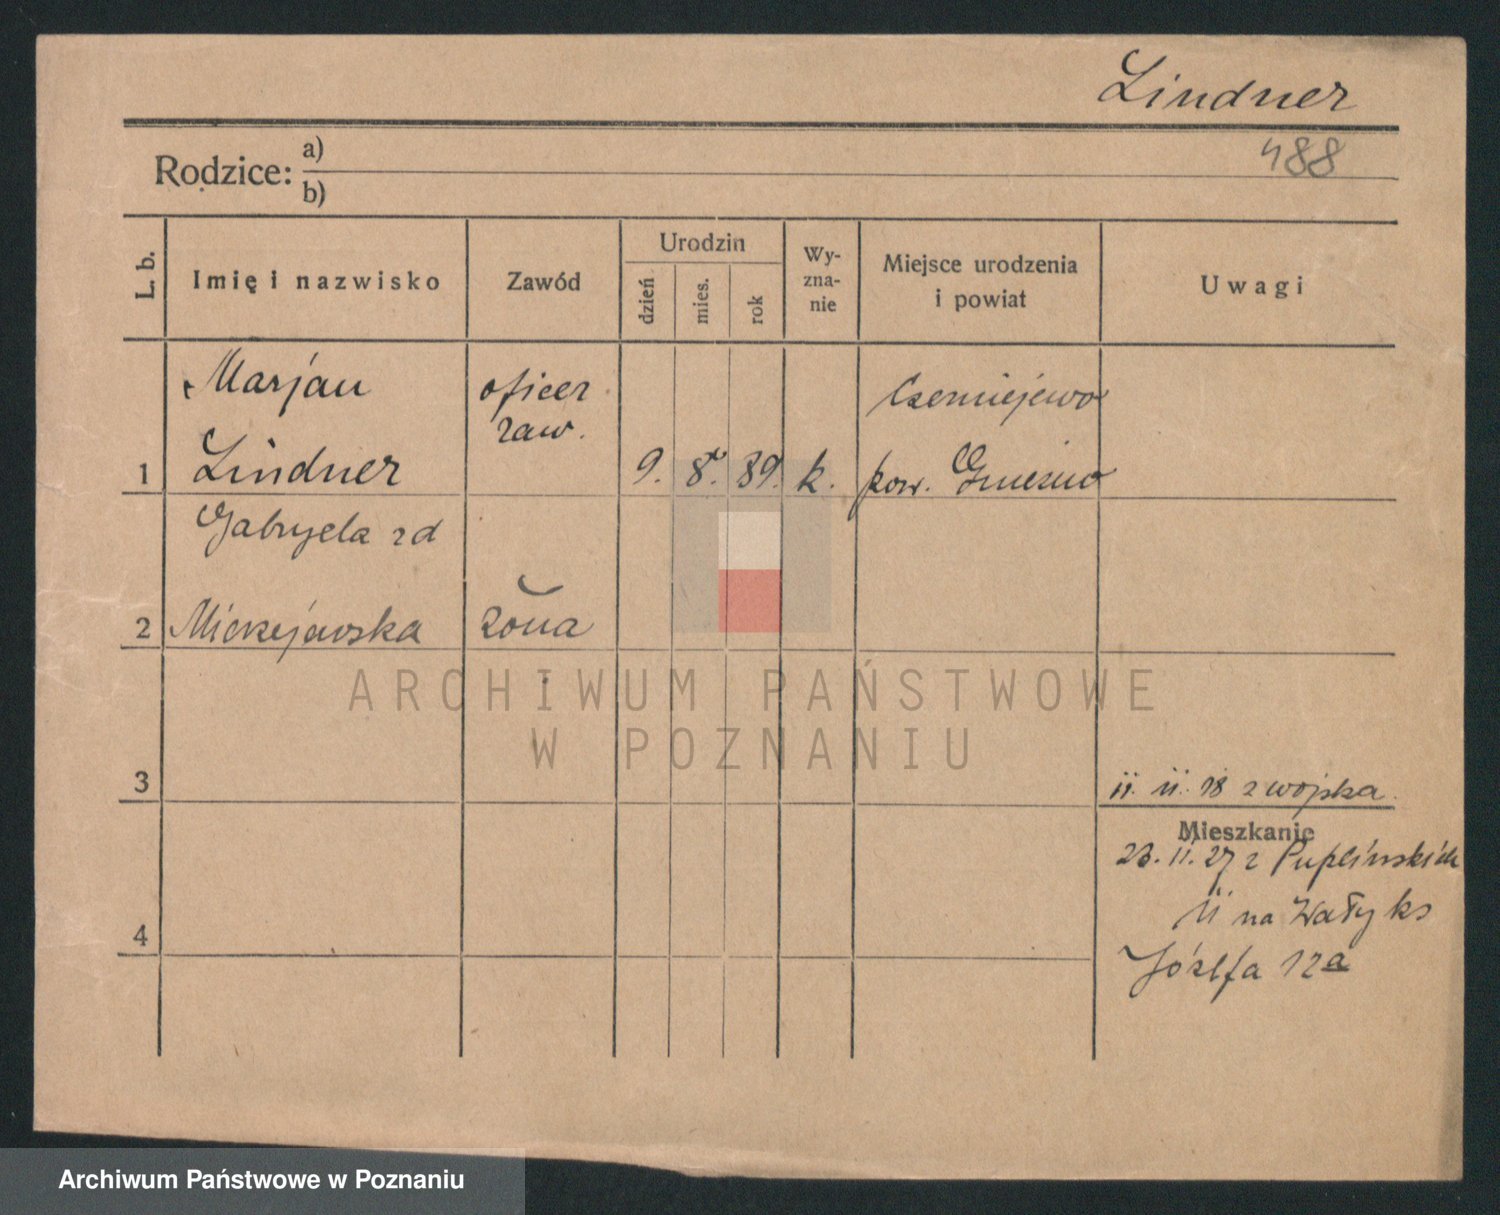 Lindner
488
Rodzice: a)
b)
L. b.
Imię i nazwisko
Zawód
Urodzin
dzień
mies.
rok
Wy-
zna-
nie
Miejsce urodzenia
i powiat
Uwagi
Marjan
oficer
zaw.
Czerniejewo
1 Lindner 9. 8. 89. k. pow. Gniezno
Gabryela zd
2 Mierzejewska żona
ARCHIWUM PAŃSTWOWE
W POZNANIU
3
11. 11. 18 z wojska
Mieszkanie
23. 11. 27 z Puplińskich
11 na Wały ks
Józefa 12a
4
Archiwum Państwowe w Poznaniu